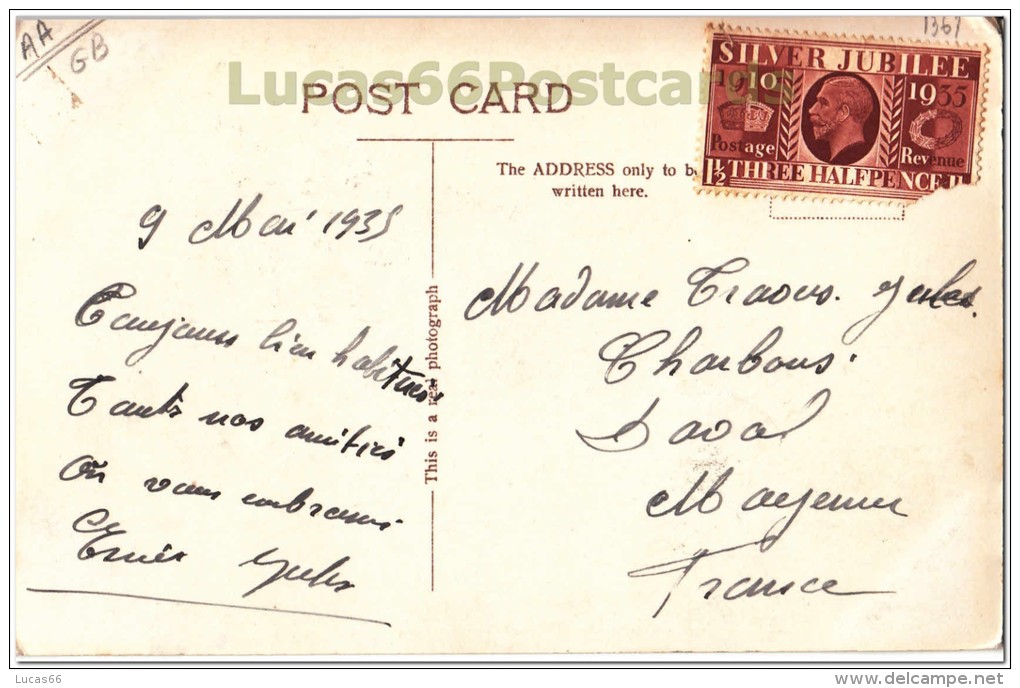 AA
GB
1367
Lucas66Postcards
POST CARD
SILVER JUBILEE
1910 1935
Postage Revenue
1½ THREE HALFPENCE 1
The ADDRESS only to be
written here.
This is a real photograph
9 Mai 1935
Toujours bien
nos amitiés
On vous embrassent
Jules
Madame Jules
Charbons
Laval
Mayenne
France
Lucas66
delcampe.net